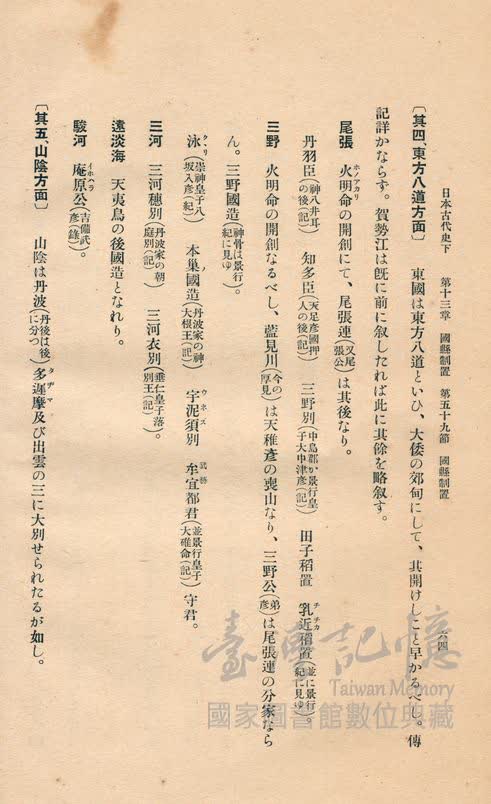 日本古代史下　第十三章　國縣制置　第五十九節　國縣制置　六四
〔其四、東方八道方面〕　東國は東方八道といひ、大倭の郊甸にして、其開けしこと早かるべし。傳
記詳かならず。賀勢江は既に前に叙したれば此に其餘を略叙す。
尾張　火明命の開創にて、尾張連(又尾張公)は其後なり。
ホノアカリ
丹羽臣(神八井耳の後(記))　知多臣(天足彥國押人の後(記))　三野別(中島郡か景行皇子大中津彥(記))　田子稻置　乳近稻置(並に景行紀に見ゆ)。
チヂカ
三野　火明命の開創なるべし、藍見川(今の厚見)は天稚彥の喪山なり、三野公(弟彥)は尾張連の分家なら
ん。三野國造(神骨は景行紀に見ゆ)。
泳(崇神皇子八坂入彥(紀))　本巢國造(丹波家の神大根王(記))　宇泥須別　牟宜都君(並景行皇子大碓命(記))守君。
クヽリ　ノ　ウネス　武藝
三河　三河穗別(丹波家の朝庭別(記))　三河衣別(垂仁皇子落別王(記))。
遠淡海　天夷鳥の後國造となれり。
駿河　庵原公(吉備武彥(錄))。
イホハラ
〔其五、山陰方面〕　山陰は丹波(丹後は後に分つ)多遲摩及び出雲の三に大別せられたるが如し。
タヂマ
臺灣記憶
Taiwan Memory
國家圖書館數位典藏